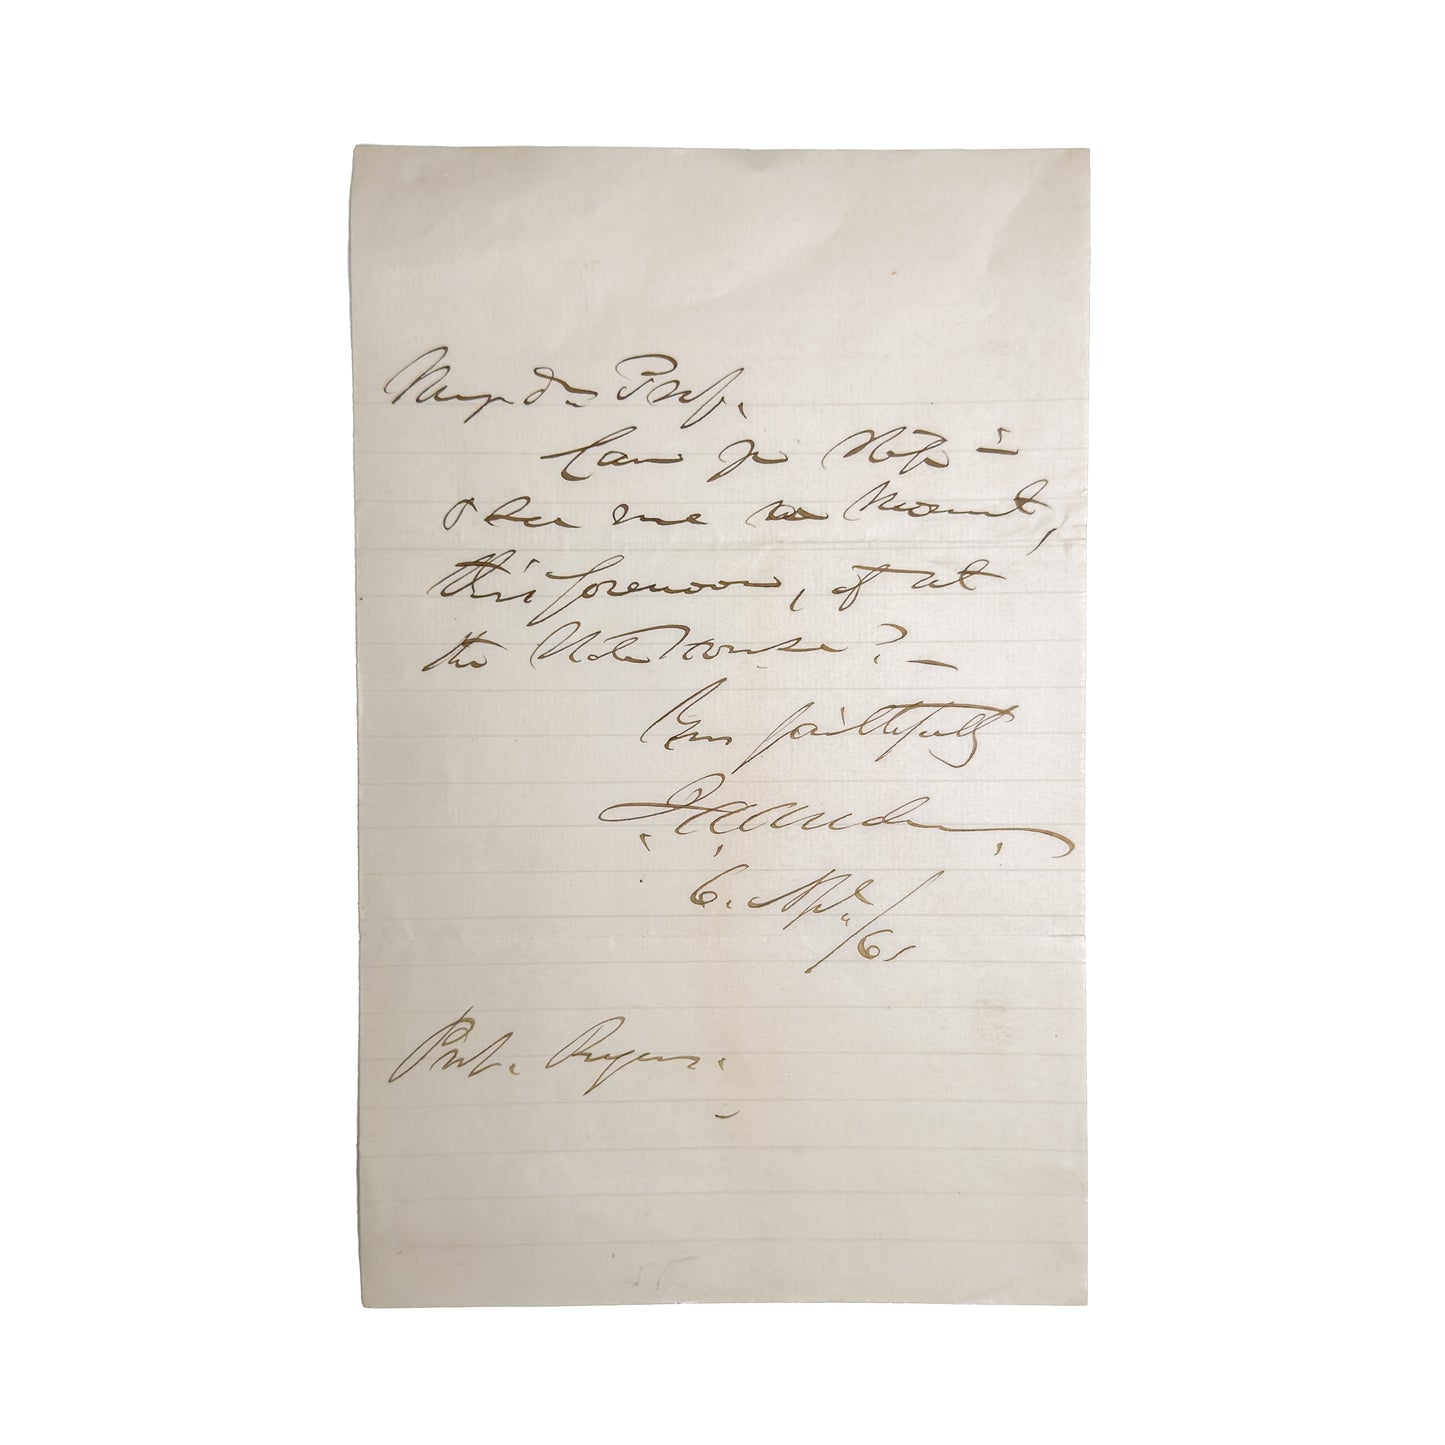 My dr Prof.
Can you stop in
& see me a moment,
this forenoon, at
the State House?
Yrs faithfully
J A Andrew
6. Apl. /61
Prof. Rogers.